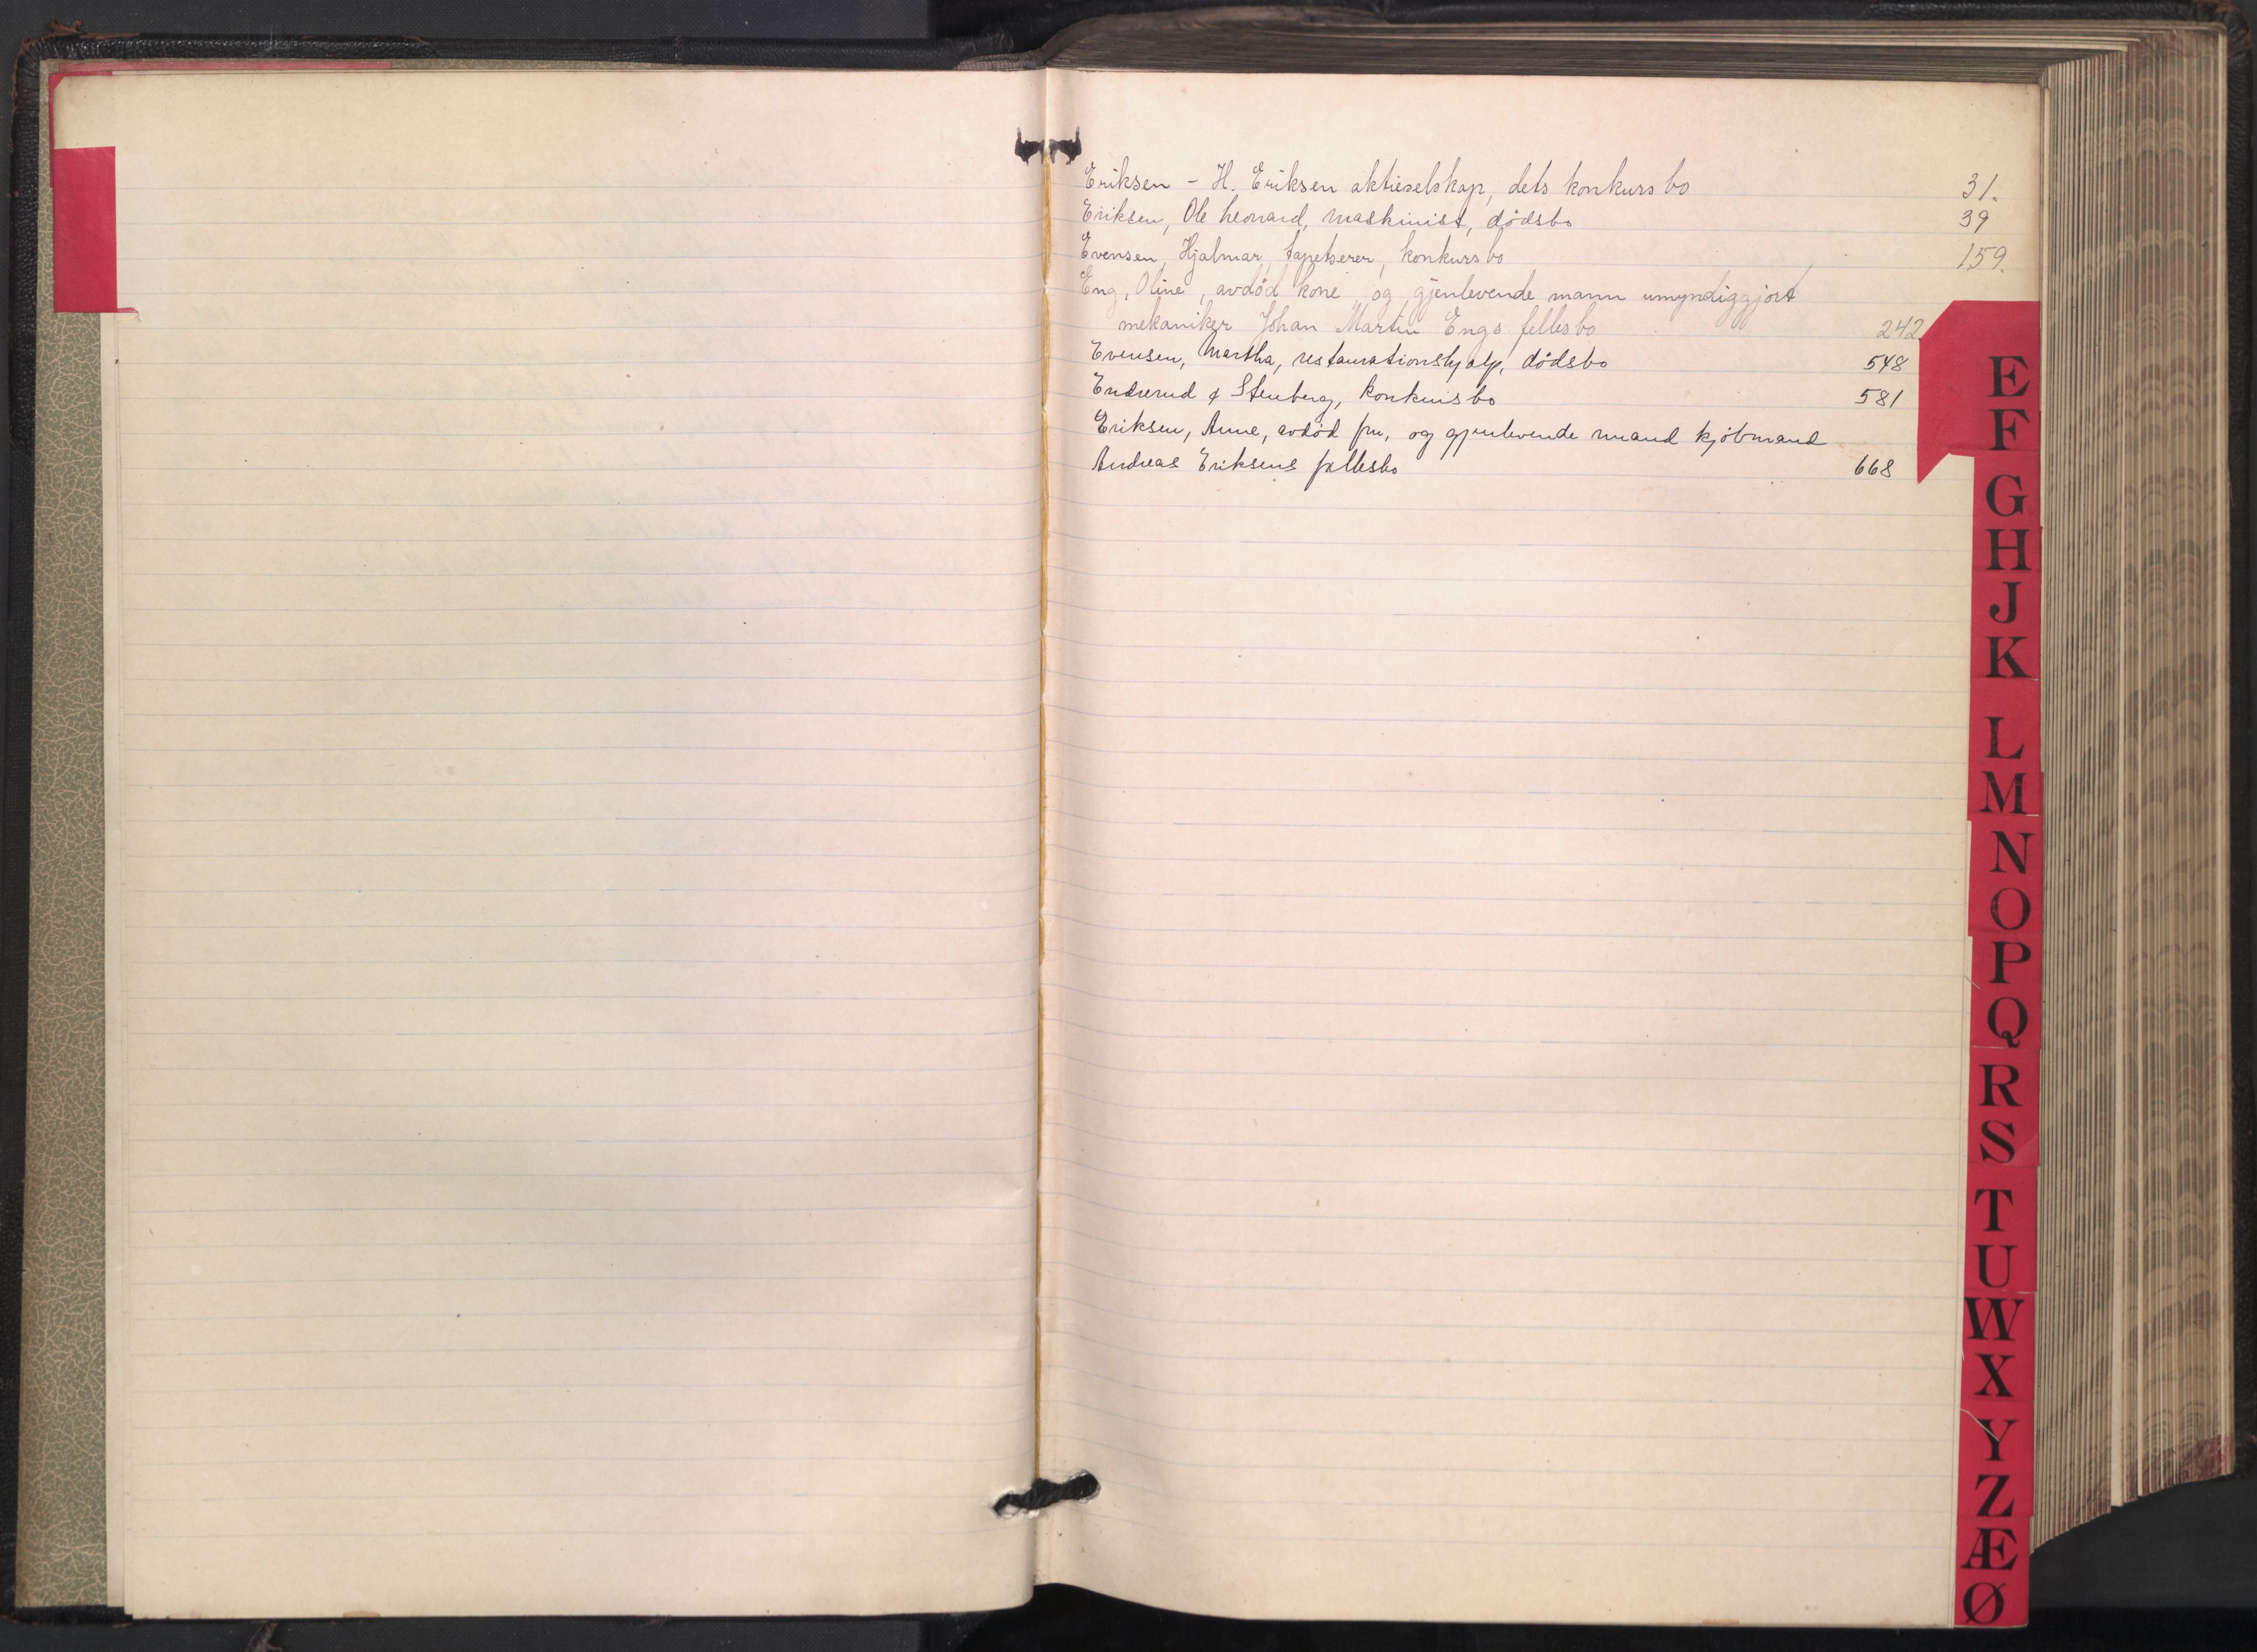 Eriksen - H. Eriksen aktieselskap, dets konkursbo 31.
Eriksen, Ole Leonard, maskinist, dødsbo 39
Evensen, Hjalmar, tapetserer, konkursbo 159.
Eng, Oline, avdød kone og gjenlevende mann umyndiggjort
mekaniker Johan Martin Engs fellesbo 242
Evensen, Martha, restaurationshjælp, dødsbo 548
Endrerud & Stenberg, konkursbo 581
Eriksen, Anne, avdød fru, og gjenlevende mand kjøbmand
Andreas Eriksens fællesbo 668
E
F
G
H
J
K
L
M
N
O
P
Q
R
S
T
U
W
X
Y
Z
Æ
Ø